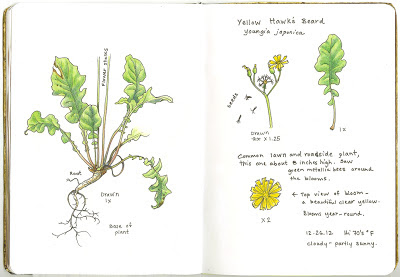 Flower stalks
Root
Drawn
1x
Base of
plant
Yellow Hawk's Beard
youngia japonica
seeds
Drawn
1x
Common lawn and roadside plant,
this one about 8 inches high. Saw
green metallic bees around
the blooms.
← Top view of bloom -
a beautiful clear yellow.
Blooms year-round.
x 2
12-26-12 Hi 70's °F
cloudy - partly sunny.